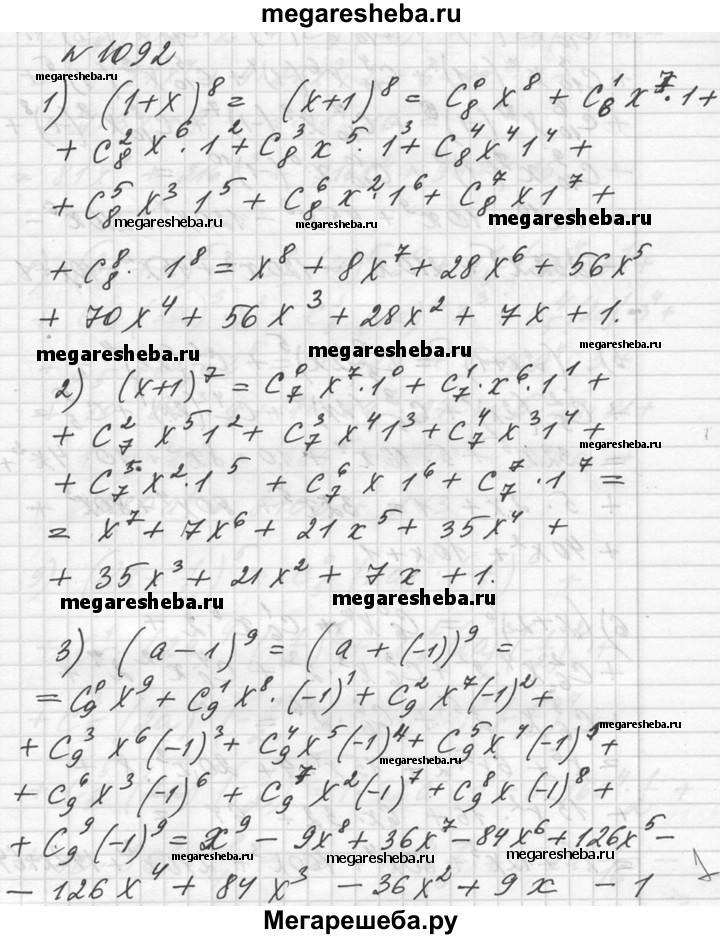 megaresheba.ru
№ 1092
megaresheba.ru
1) (1+x)^8 = (x+1)^8 = C_8^0 x^8 + C_8^1 x^7·1 +
+ C_8^2 x^6·1^2 + C_8^3 x^5·1^3 + C_8^4 x^4 1^4 +
+ C_8^5 x^3 1^5 + C_8^6 x^2·1^6 + C_8^7 x 1^7 +
megaresheba.ru megaresheba.ru
+ C_8^8· 1^8 = x^8 + 8x^7 + 28x^6 + 56x^5
+ 70x^4 + 56x^3 + 28x^2 + 7x + 1.
megaresheba.ru megaresheba.ru megaresheba.ru
2) (x+1)^7 = C_7^0 x^7·1^0 + C_7^1·x^6·1^1 +
+ C_7^2 x^5 1^2 + C_7^3 x^4 1^3 + C_7^4 x^3 1^4 +
megaresheba.ru
+ C_7^5 x^2·1^5 + C_7^6 x 1^6 + C_7^7·1^7 =
= x^7 + 7x^6 + 21x^5 + 35x^4 +
+ 35x^3 + 21x^2 + 7x + 1.
megaresheba.ru megaresheba.ru
3) (a-1)^9 = (a+(-1))^9 =
= C_9^0 x^9 + C_9^1 x^8·(-1)^1 + C_9^2 x^7(-1)^2 +
megaresheba.ru
+ C_9^3 x^6(-1)^3 + C_9^4 x^5(-1)^4 + C_9^5 x^4(-1)^5 +
megaresheba.ru
+ C_9^6 x^3(-1)^6 + C_9^7 x^2(-1)^7 + C_9^8 x(-1)^8 +
+ C_9^9(-1)^9 = x^9 - 9x^8 + 36x^7 - 84x^6 + 126x^5 -
megaresheba.ru megaresheba.ru
- 126x^4 + 84x^3 - 36x^2 + 9x - 1
Мегарешеба.ру